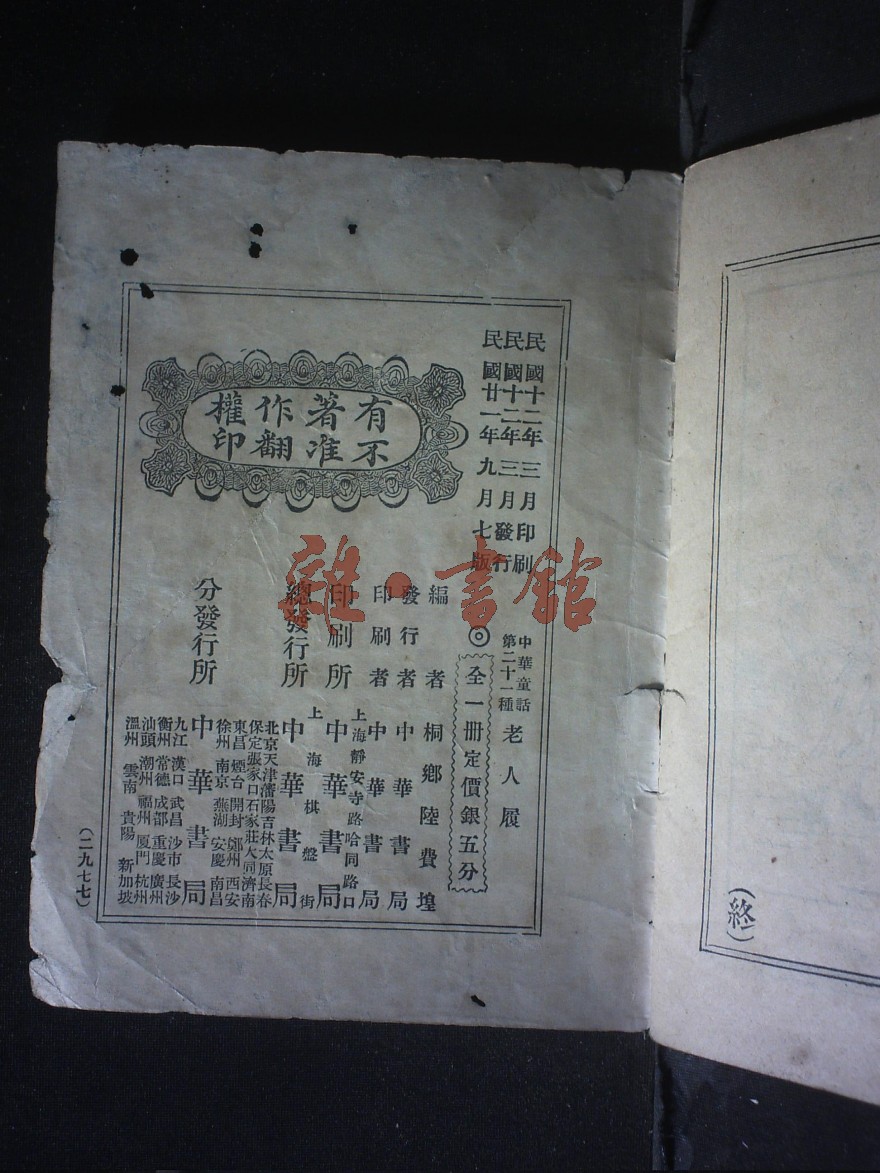 民國十二年三月印刷
民國十二年三月發行
民國廿一年九月七版
中華童話
第二十一種
老人履
◎全一冊定價銀五分
編者 桐鄉陸費堭
發行者 中華書局
印刷者 中華書局
上海靜安寺路哈同路口
印刷所 中華書局
上海棋盤街
總發行所 中華書局
北京天津瀋陽吉林太原長春
保定張家口石家莊大同濟南
東昌煙台開封鄭州西安
徐州南京蕪湖安慶南昌
分發行所 中華書局
九江漢口武昌沙市長沙
衡州常德成都重慶廣州
汕頭潮州福州厦門杭州
溫州雲南貴陽新加坡
有著作權
不准翻印
(二九七七)
(終)
雜·書館